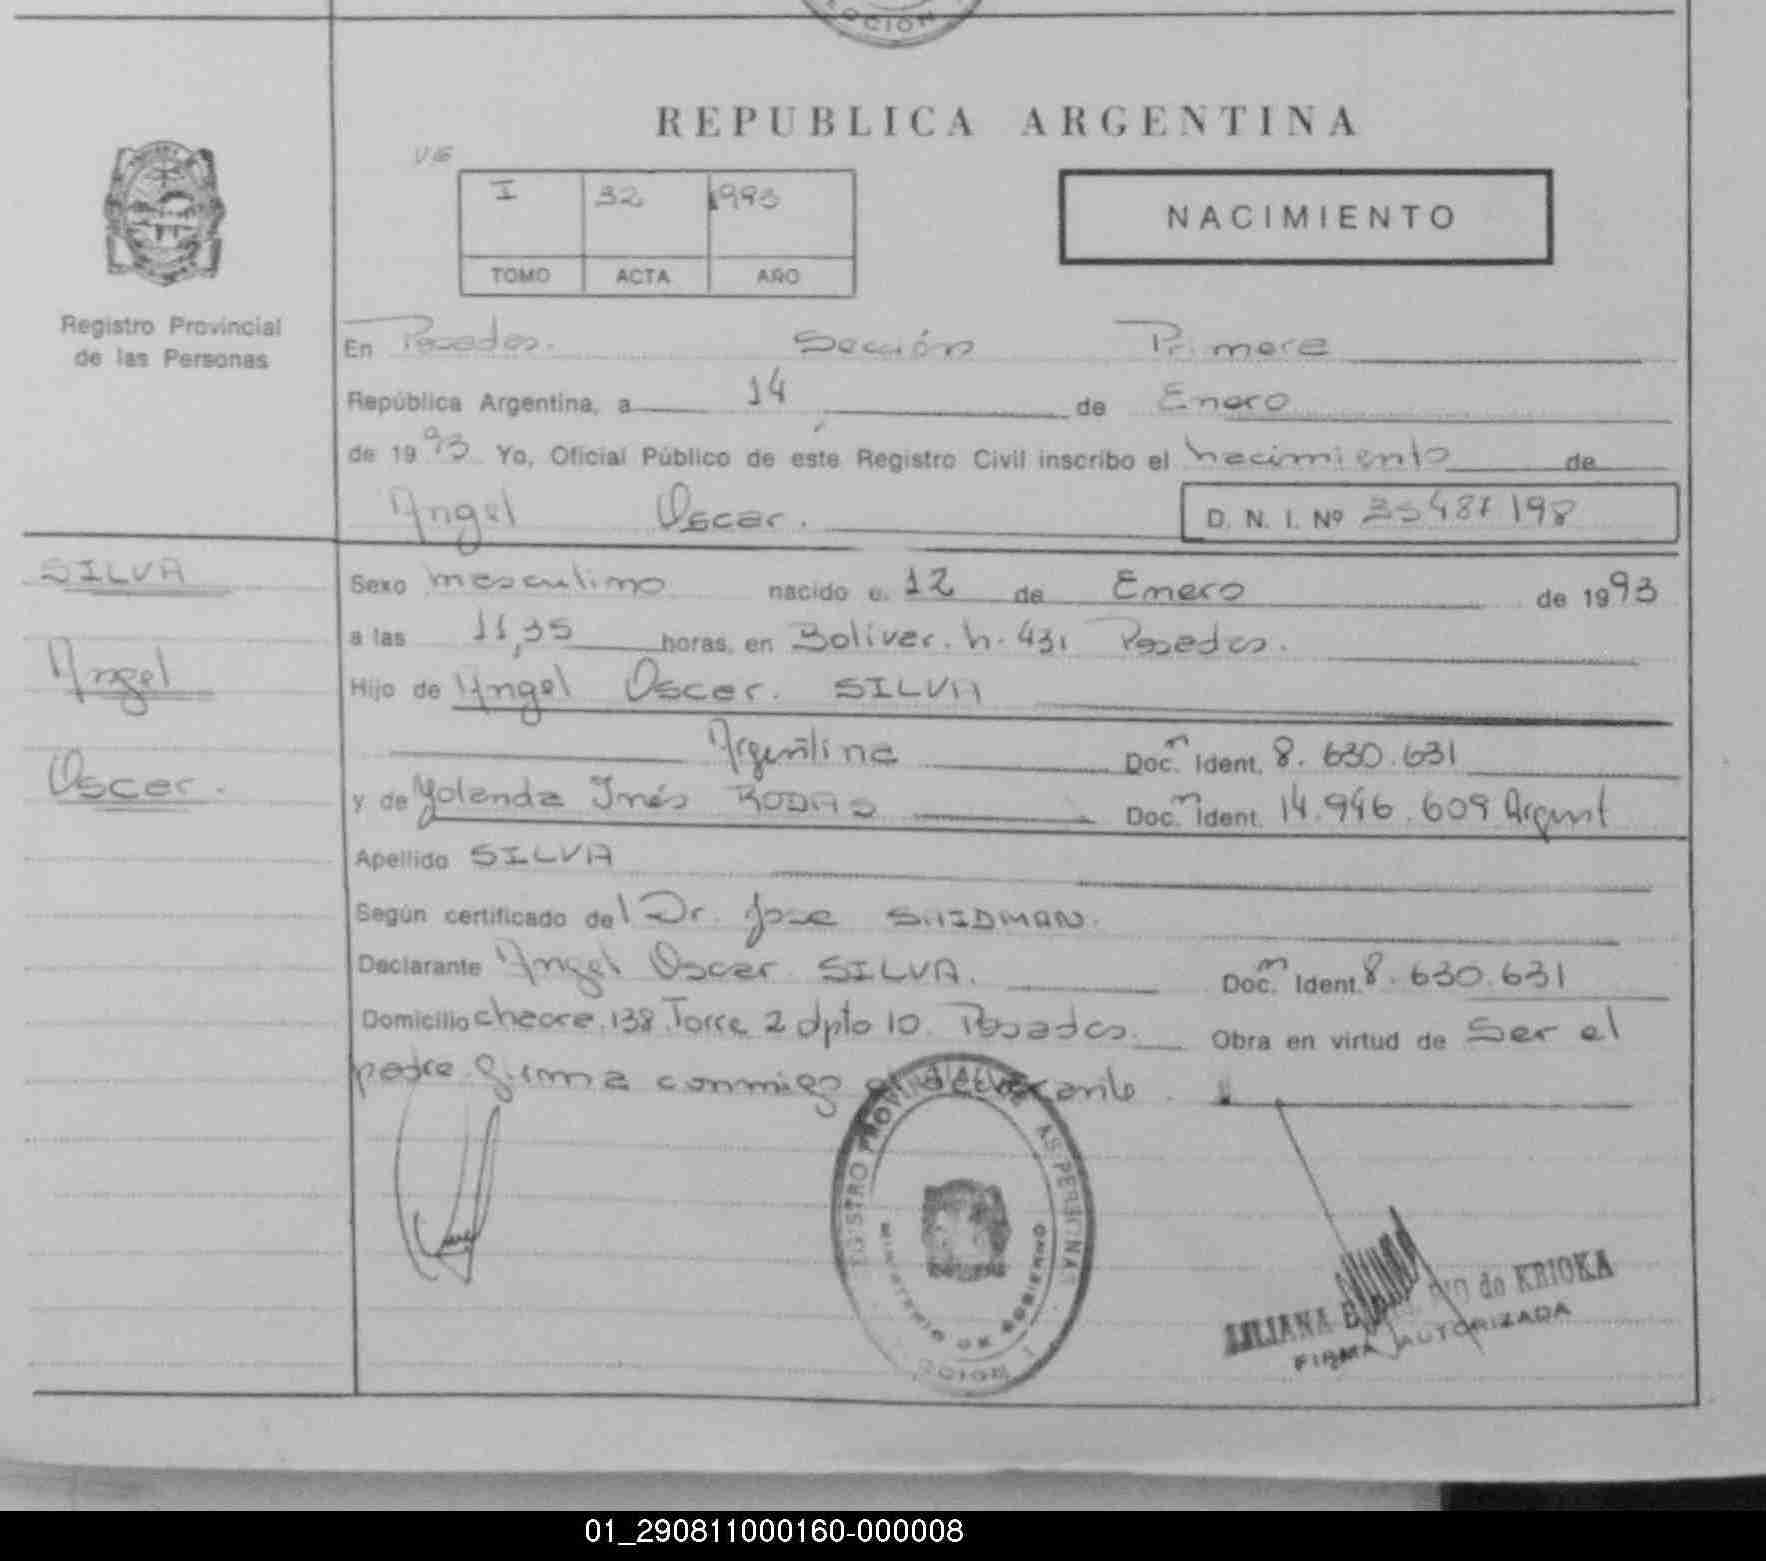 REPUBLICA ARGENTINA
I 32 1993
TOMO ACTA AÑO
NACIMIENTO
Registro Provincial
de las Personas
En Posadas. Sección Primera
República Argentina, a 14 de Enero
de 1993 Yo, Oficial Público de este Registro Civil inscribo el nacimiento de
Angel Oscar.
D. N. I. Nº 35487198
SILVA
Angel
Oscar.
Sexo masculino nacido e. 12 de Enero de 1993
a las 11,35 horas, en Bolivar. h. 431 Posadas.
Hijo de Angel Oscar. SILVA
Argentina Doc.m Ident. 8.630.631
y de Yolanda Inés RODAS Doc.m Ident. 14.946.609 Argent
Apellido SILVA
Según certificado del Dr. Jose
Declarante Angel Oscar SILVA. Doc.m Ident. 8.630.631
Domicilio 138. Torre 2 dpto 10. Posadas. Obra en virtud de Ser el
padre firma conmigo el declarante.
REGISTRO PROVINCIAL DE LAS PERSONAS
MINISTERIO DE GOBIERNO
LILIANA de KRIOKA
FIRMA AUTORIZADA
01_290811000160-000008